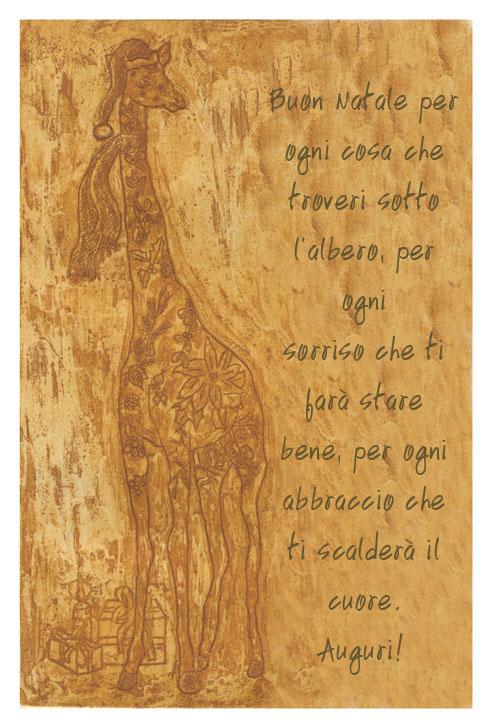 Buon Natale per
ogni cosa che
troveri sotto
l'albero, per
ogni
sorriso che ti
farà stare
bene, per ogni
abbraccio che
ti scalderà il
cuore.
Auguri!